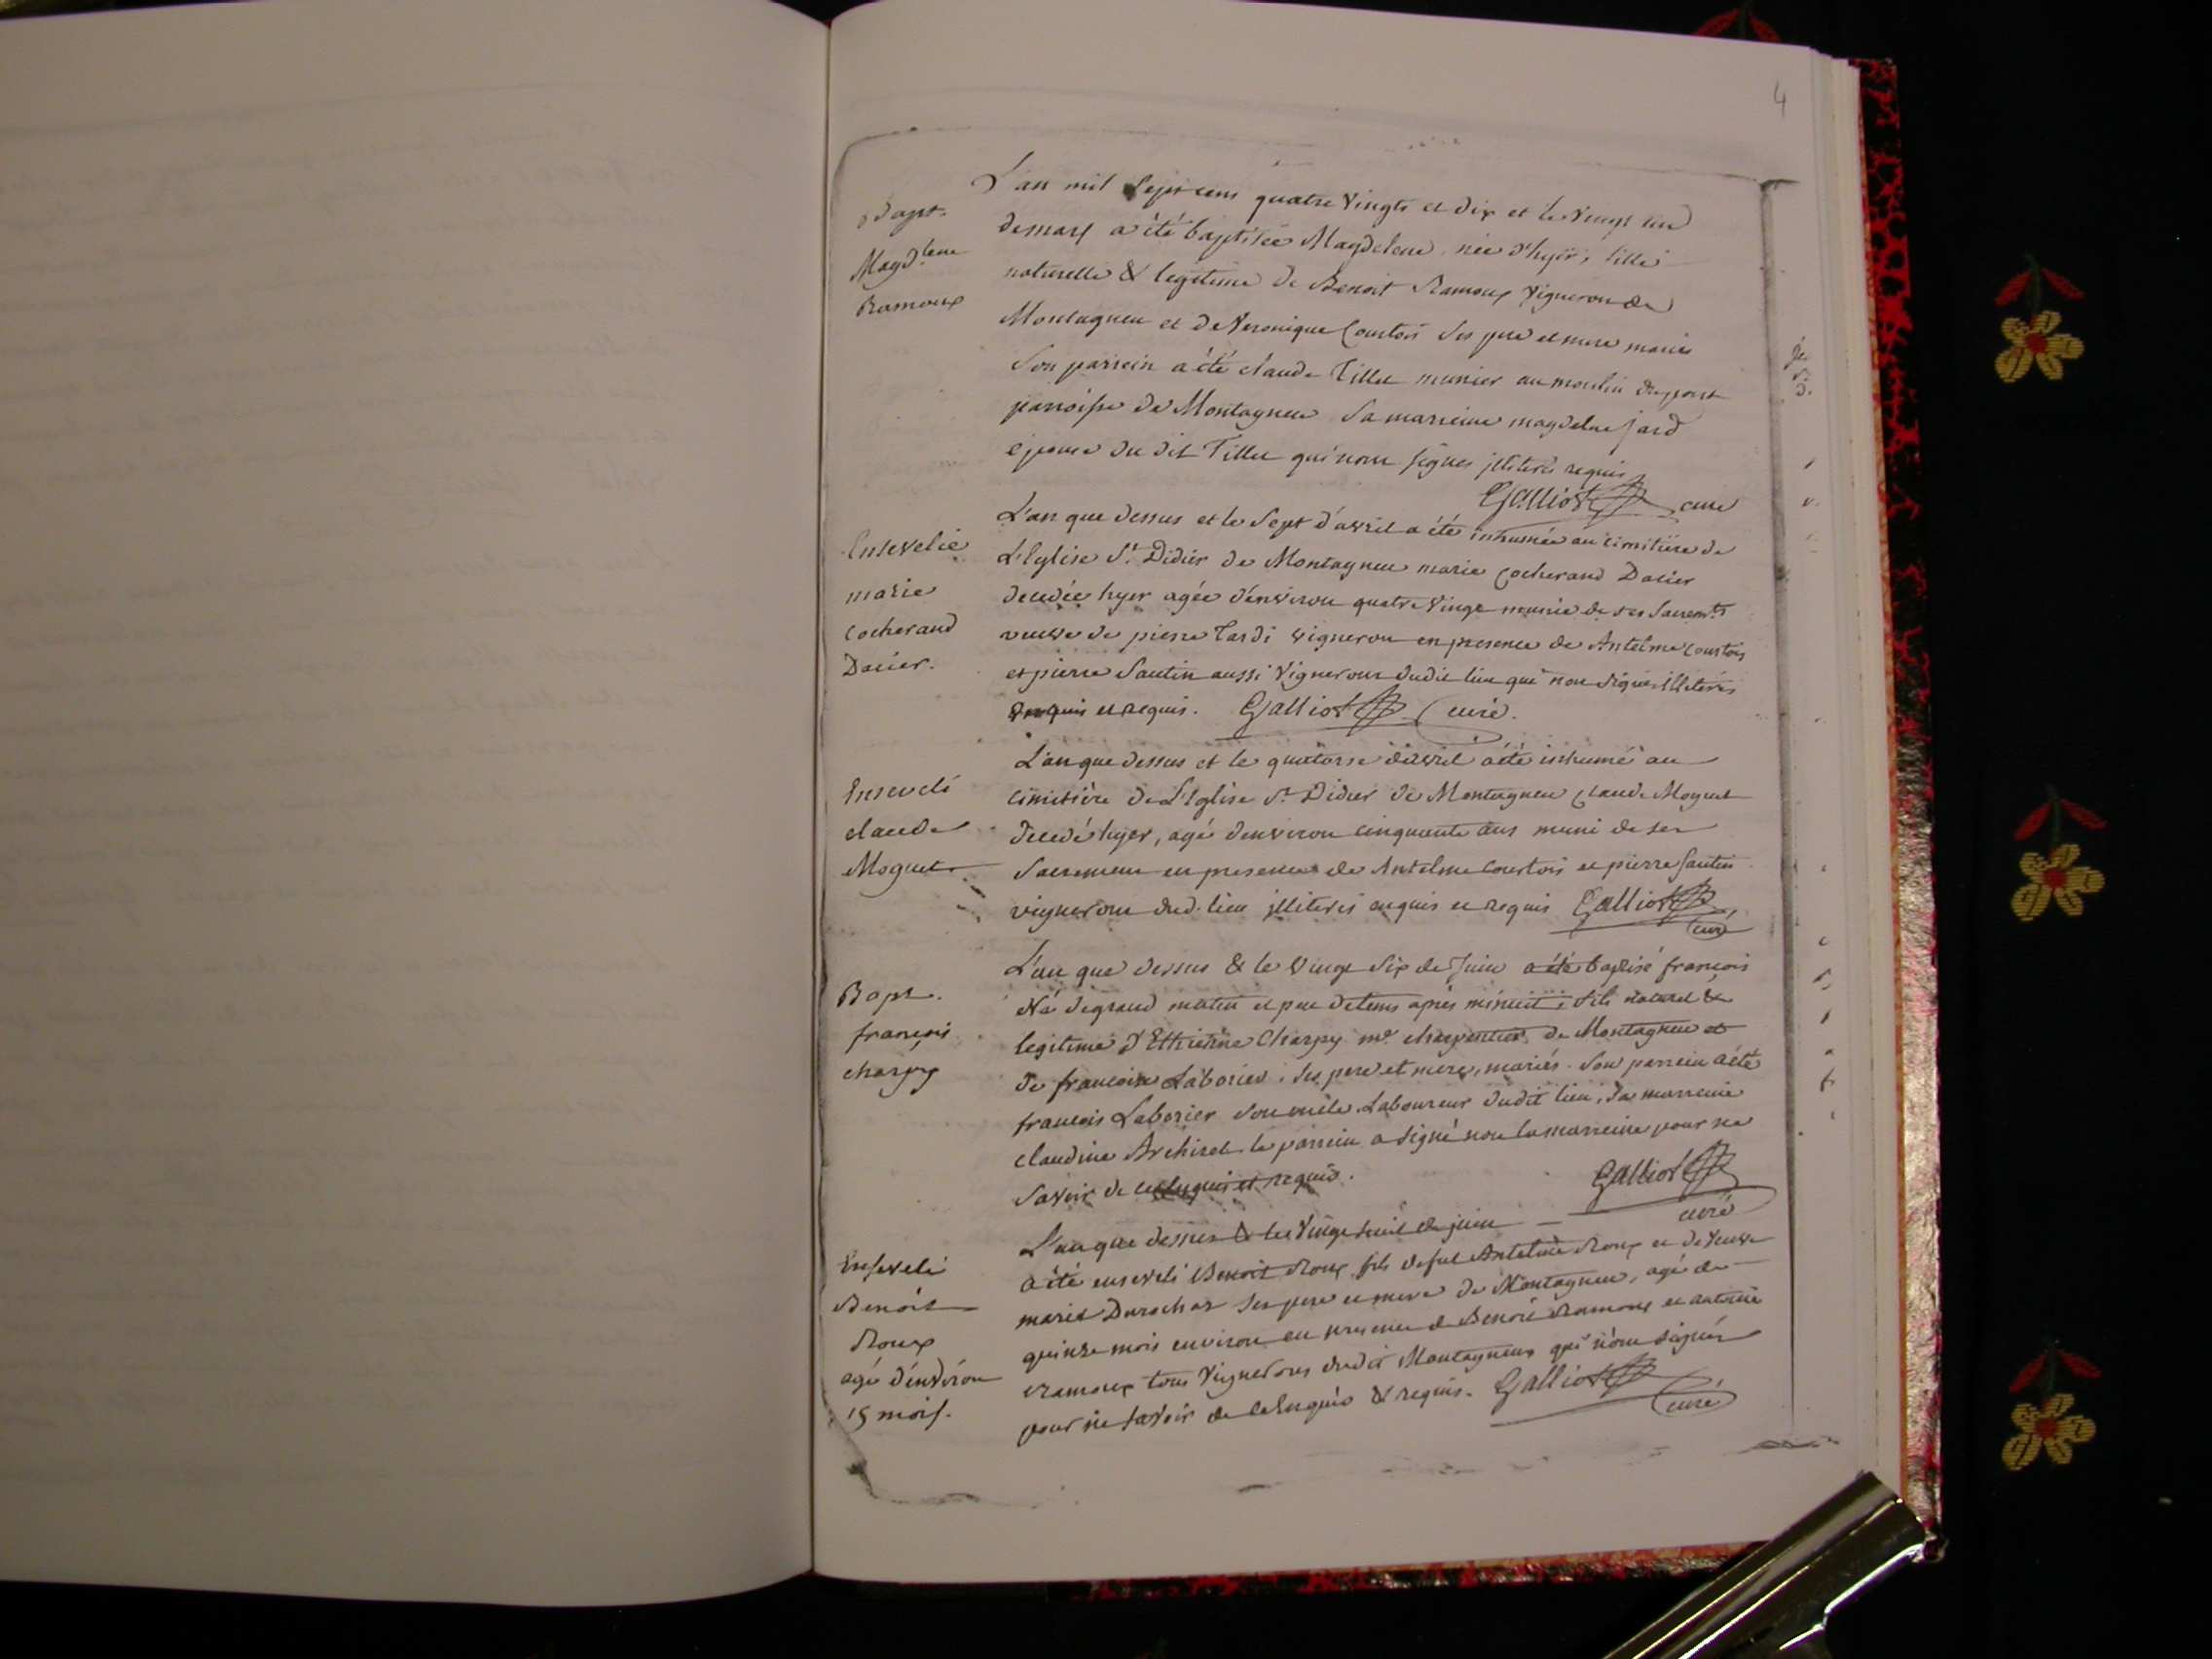 4
Bapt.
Magdlene
Ramoux
L'an mil sept cens quatre vingts et dix et le vingt un
de mars a été baptisée Magdelene née d'hyer, fille
naturelle & legitime de Benoit Ramoux vigneron de
Montagneu et de Veronique Courtois ses pere et mere mariés
son parrein a été claude Tillet munier au moulin du pont
parroisse de Montagneu sa marreine magdelne jard
épouse du dit Tillet qui n'ont signés jlliterés requis
Galliot curé
Ensevelie
marie
cocherand
Dacier.
L'an que dessus et le sept d'avril a été inhumée au cimitiere de
L'Eglise St. Didier de Montagneu marie cocherand Dacier
decedée hyer agée d'environ quatre vingt munie de ses sacremts
veuve de pierre Tardi vigneron en presence de Antelme courtois
et pierre Sautin aussi vignerons dudit lieu qui non signés illiterés
enquis et requis. Galliot curé.
Enseveli
claude
Moguet
L'an que dessus et le quatorse d'avril a été inhumé au
cimitière de L'Eglise St Didier de Montagneu claude Moguet
decedé hyer, agé d'environ cinquante ans muni de ses
sacremens en presence de Antelme courtois et pierre Sautin
vignerons dud. lieu jlliterés enquis et requis Galliot
curé
Bapt.
françois
charpy
L'an que dessus & le vingt six de Juin a été baptisé françois
Né de grand matin et peu de tems après minuit, fils naturel &
legitime d'Ethienne Charpy me. charpentier de Montagneu et
de francoise Laborier ses pere et mere, mariés. son parrein a été
francois Laborier son oncle Laboureur dudit lieu, sa marreine
claudine Archirel le parrein a signé non la marreine pour ne
savoir de ce enquis et requis. Galliot
curé
Enseveli
Benoit
Roux
agé d'environ
15 mois.
L'an que dessus & le vingt huit de juin
a été enseveli Benoit Roux fils de feu Antelme Roux et de veuve
marie Durochat ses pere et mere de Montagneu, agé de
quinze mois environ en presence de Benoit Ramoux et antoine
ramoux tous vignerons dudit Montagneu qui n'ont signés
pour ne savoir de ce enquis & requis. Galliot
curé